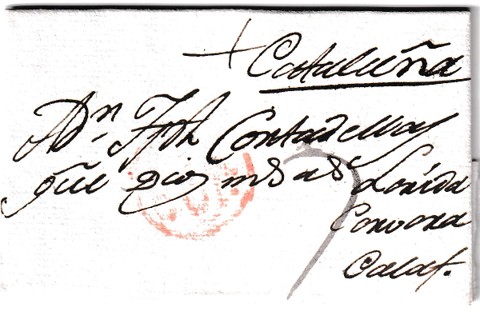 + Cataluña
A Dn. Jph Contadellas
gue Dios ms as Lérida
Cervera
Calaf.